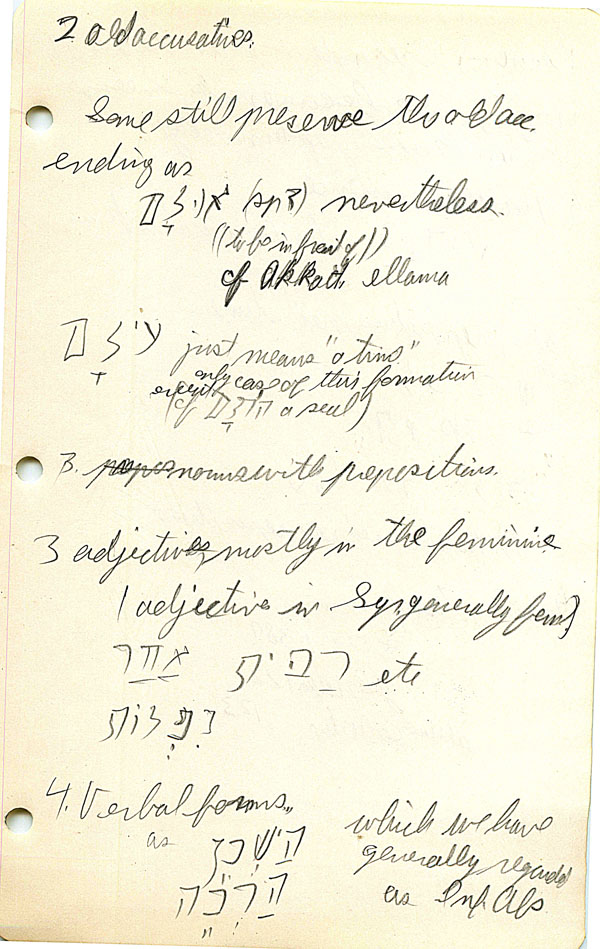 2 old accusatives.
Some still preserve the old acc.
ending as
אוּלָם nevertheless.
((to be in front of))
cf Akkad. ellama
עילָם just means "a time"
only case of this formation
except (cf חוֹתָם a seal)
3. nouns with prepositions.
3 adjectives, mostly in the feminine
(adjective in Syr. generally fem)
אַחַר רַבִּית etc
נִפְלֹאות
4. Verbal forms.
as הַשְׁכֵּן which we have
generally regarded
הַרְבֵּה as Inf Abs